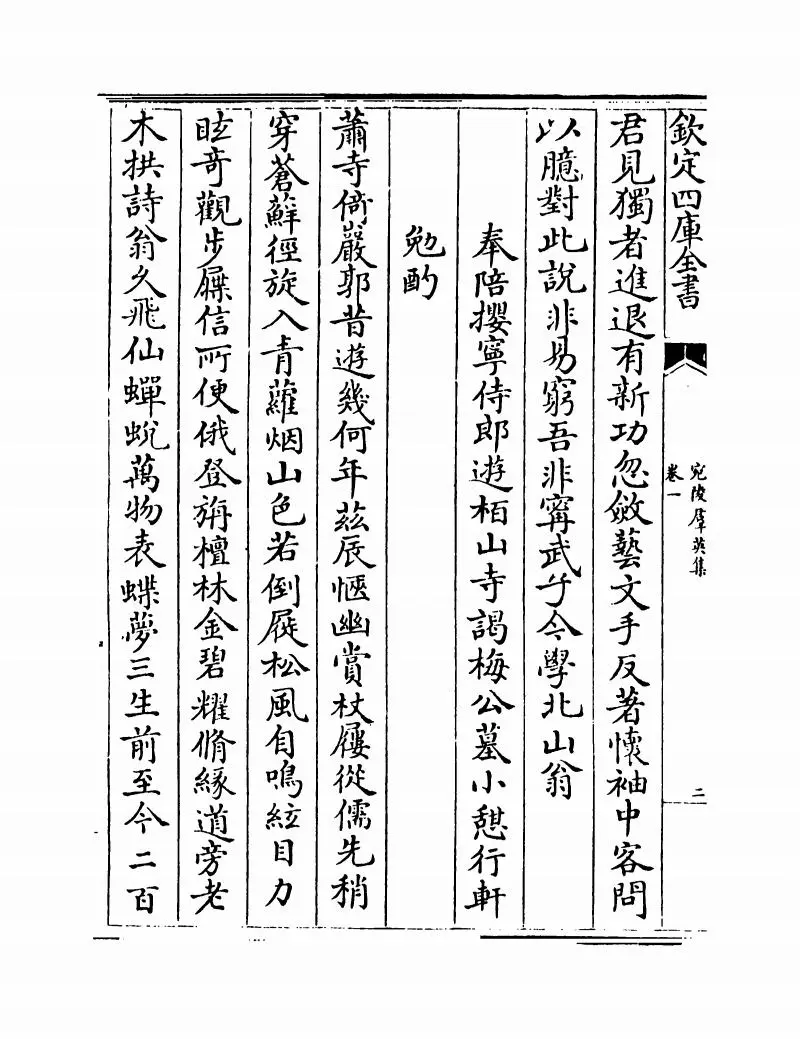 欽定四庫全書
宛陵羣英集
卷一
二
君見獨者進退有新功忽斂藝文手反著懷袖中客問
以臆對此說非易窮吾非甯武子今學北山翁
奉陪攖寧侍郎遊栢山寺謁梅公墓小憇行軒
勉酌
蕭寺倚巖郭昔遊幾何年茲辰愜幽賞杖屨從儒先稍
穿蒼蘚徑旋入青蘿烟山色若倒屐松風自鳴絃目力
眩竒觀步屧信所便俄登旃檀林金碧耀脩緣道旁老
木拱詩翁久飛仙蟬蛻萬物表蝶夢三生前至今二百